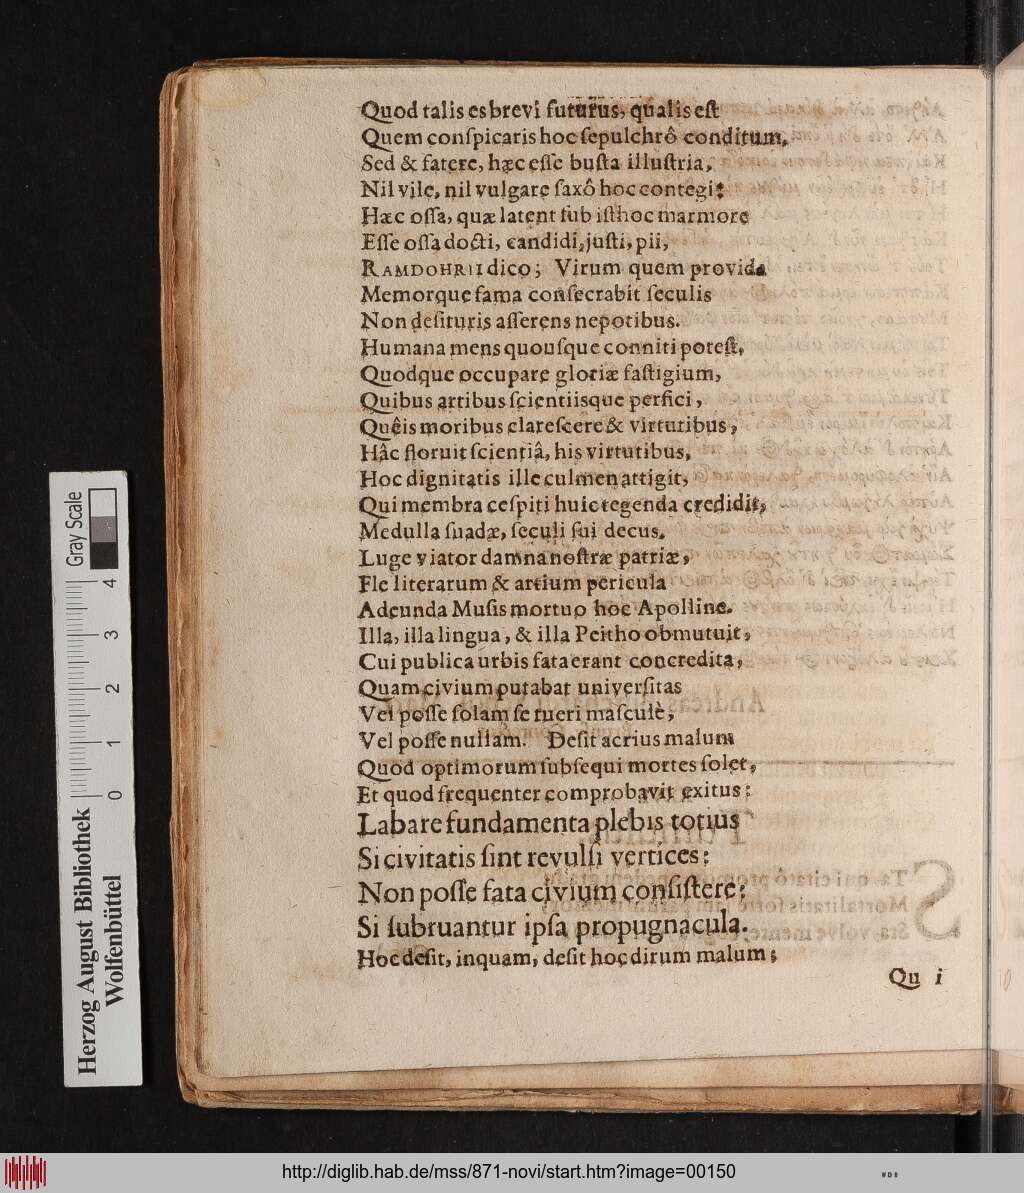 Quod talis es brevi futurus, qualis eſt
Quem conſpicaris hoc ſepulchrô conditum,
Sed & fatere, hæc eſſe buſta illuſtria,
Nil vile, nil vulgare ſaxô hoc contegi:
Hæc oſſa, quæ latent ſub iſthoc marmore
Eſſe oſſa docti, candidi, juſti, pii,
RAMDOHRII dico; Virum quem provida
Memorque fama conſecrabit ſeculis
Non deſituris aſſerens nepotibus.
Humana mens quouſque conniti poteſt,
Quodque occupare gloriæ faſtigium,
Quibus artibus ſcientiisque perfici,
Quêis moribus clareſcere & virtutibus,
Hâc floruit ſcientiâ, his virtutibus,
Hoc dignitatis ille culmen attigit,
Qui membra ceſpiti huic tegenda credidit,
Medulla ſuadæ, ſeculi ſui decus.
Luge viator damna noſtræ patriæ,
Fle literarum & artium pericula
Adeunda Muſis mortuo hoc Apolline.
Illa, illa lingua, & illa Peitho obmutuit,
Cui publica urbis fata erant concredita,
Quam civium putabat univerſitas
Vel poſſe ſolam ſe tueri maſculè,
Vel poſſe nullam. Deſit acrius malum
Quod optimorum ſubſequi mortes ſolet,
Et quod frequenter comprobavit exitus:
Labare fundamenta plebis totius
Si civitatis ſint revulſi vertices:
Non poſſe fata civium conſiſtere:
Si ſubruantur ipſa propugnacula.
Hoc deſit, inquam, deſit hoc dirum malum;
Qui
Gray Scale
4
3
2
1
0
Herzog August Bibliothek
Wolfenbüttel
http://diglib.hab.de/mss/871-novi/start.htm?image=00150